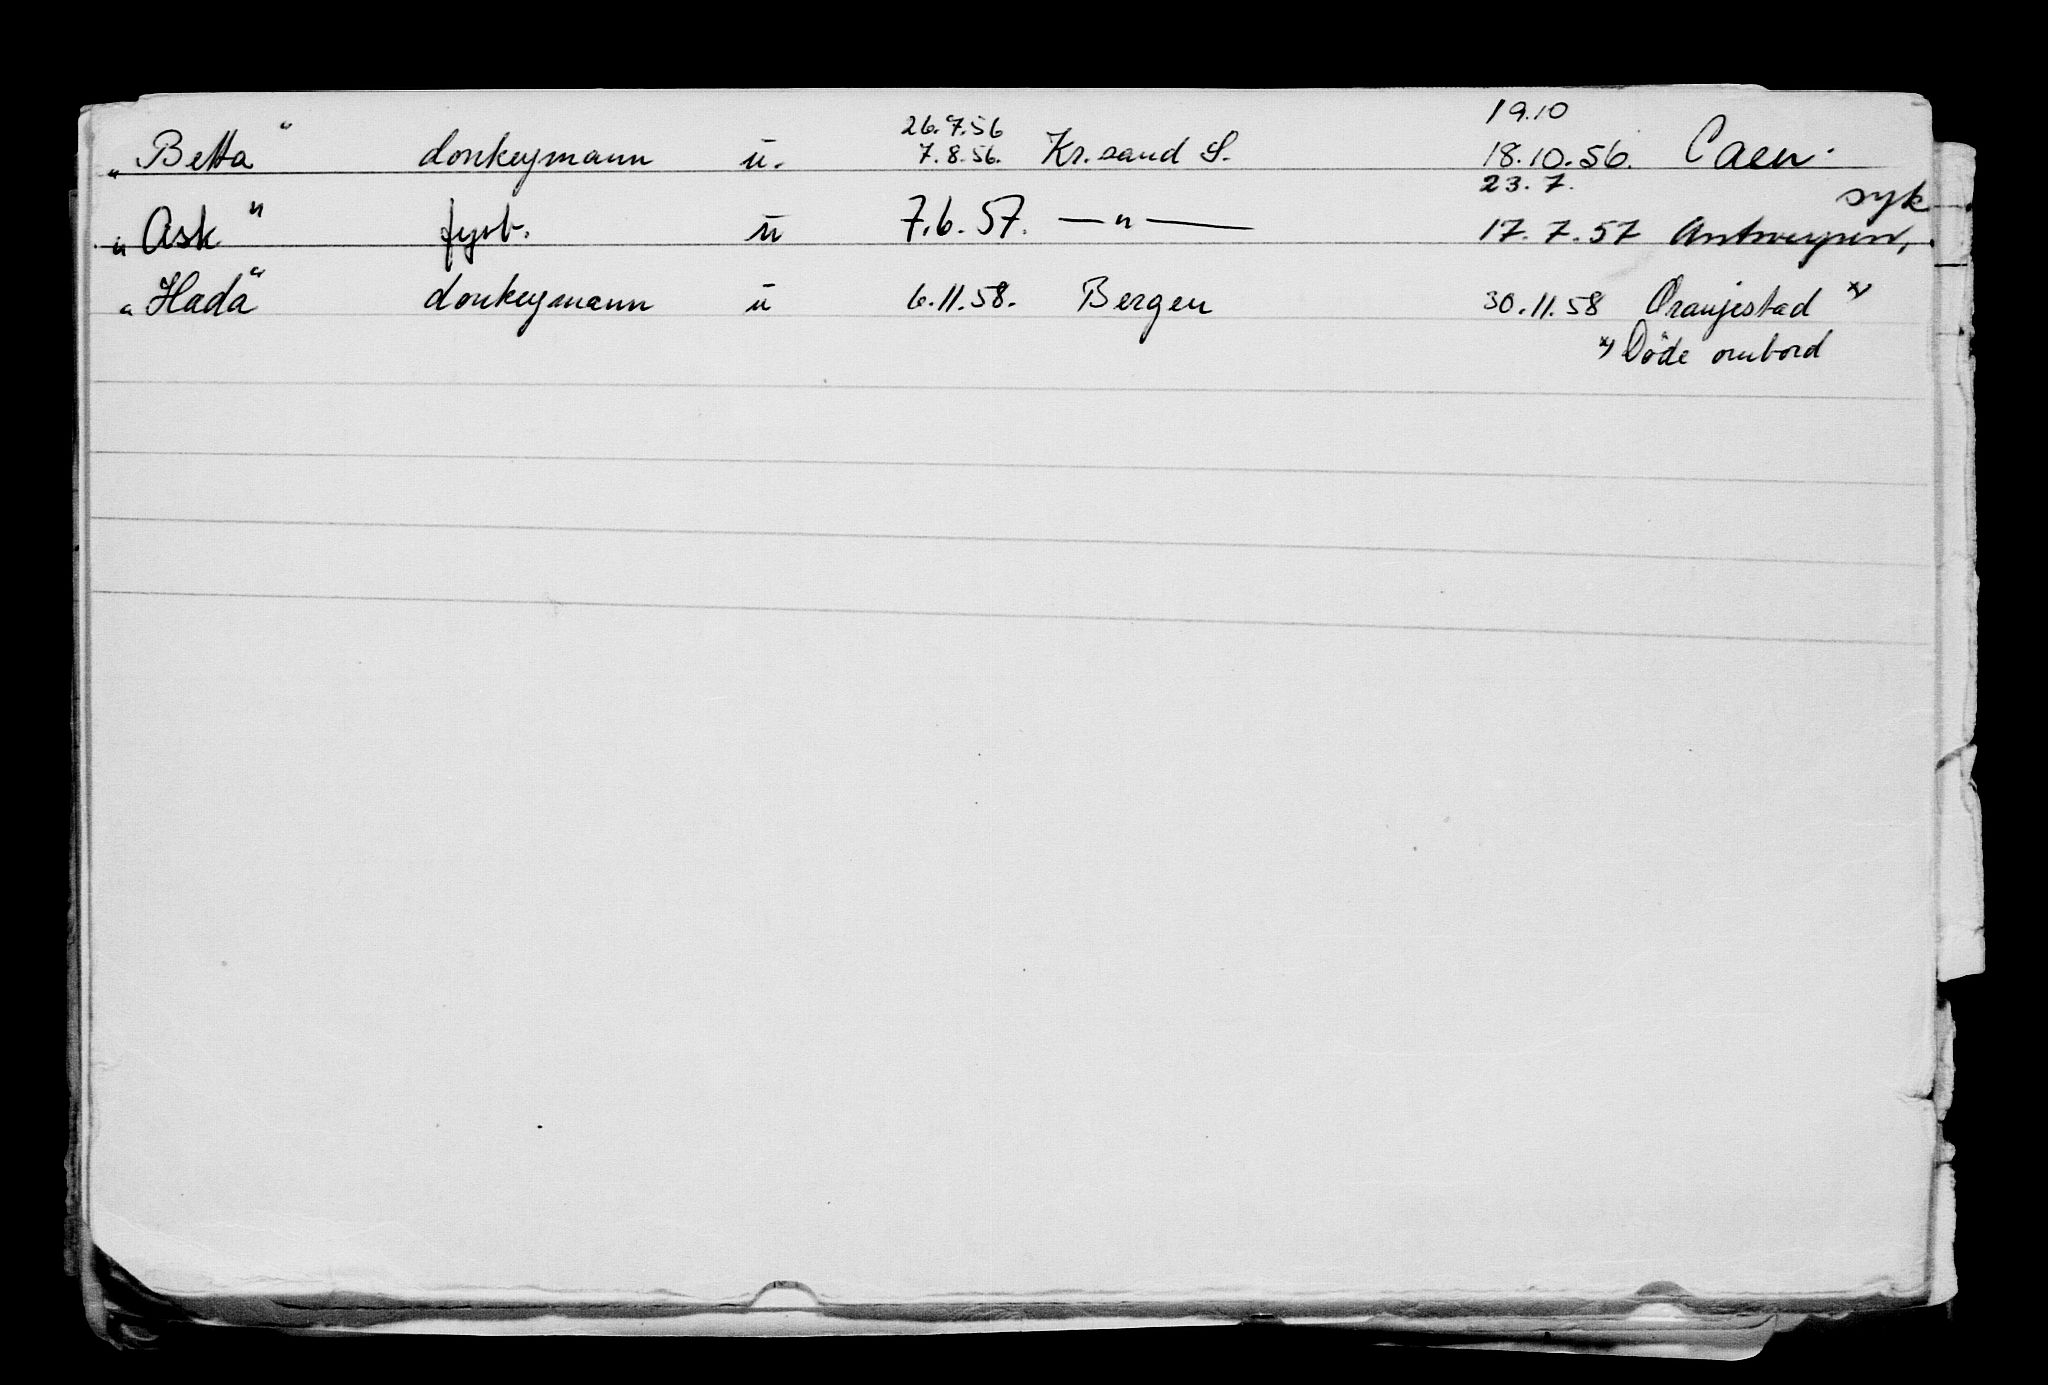 26.7.56 19.10
„Betta“ donkeymann ū. 7.8.56. Kr.sand S. 18.10.56. Caen.
23.7. syk
„Ask“ fyrb. ū 7.6.57. —"— 17.7.57 Antwerpen,
„Hada“ donkeymann ū 6.11.58. Bergen 30.11.58 Oranjestad x)
x) Döde ombord